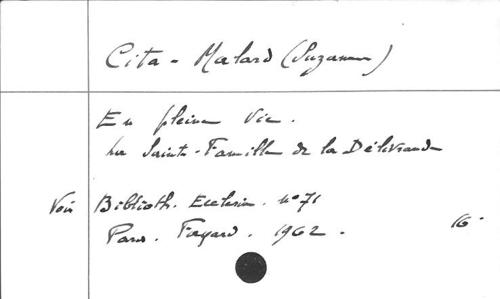 Cita-Malard (Suzanne)
En pleine Vie.
La Sainte-Famille de la Délivrande
Voir Biblioth. Ecclesia. n° 71
Paris. Fayard. 1962. 16°